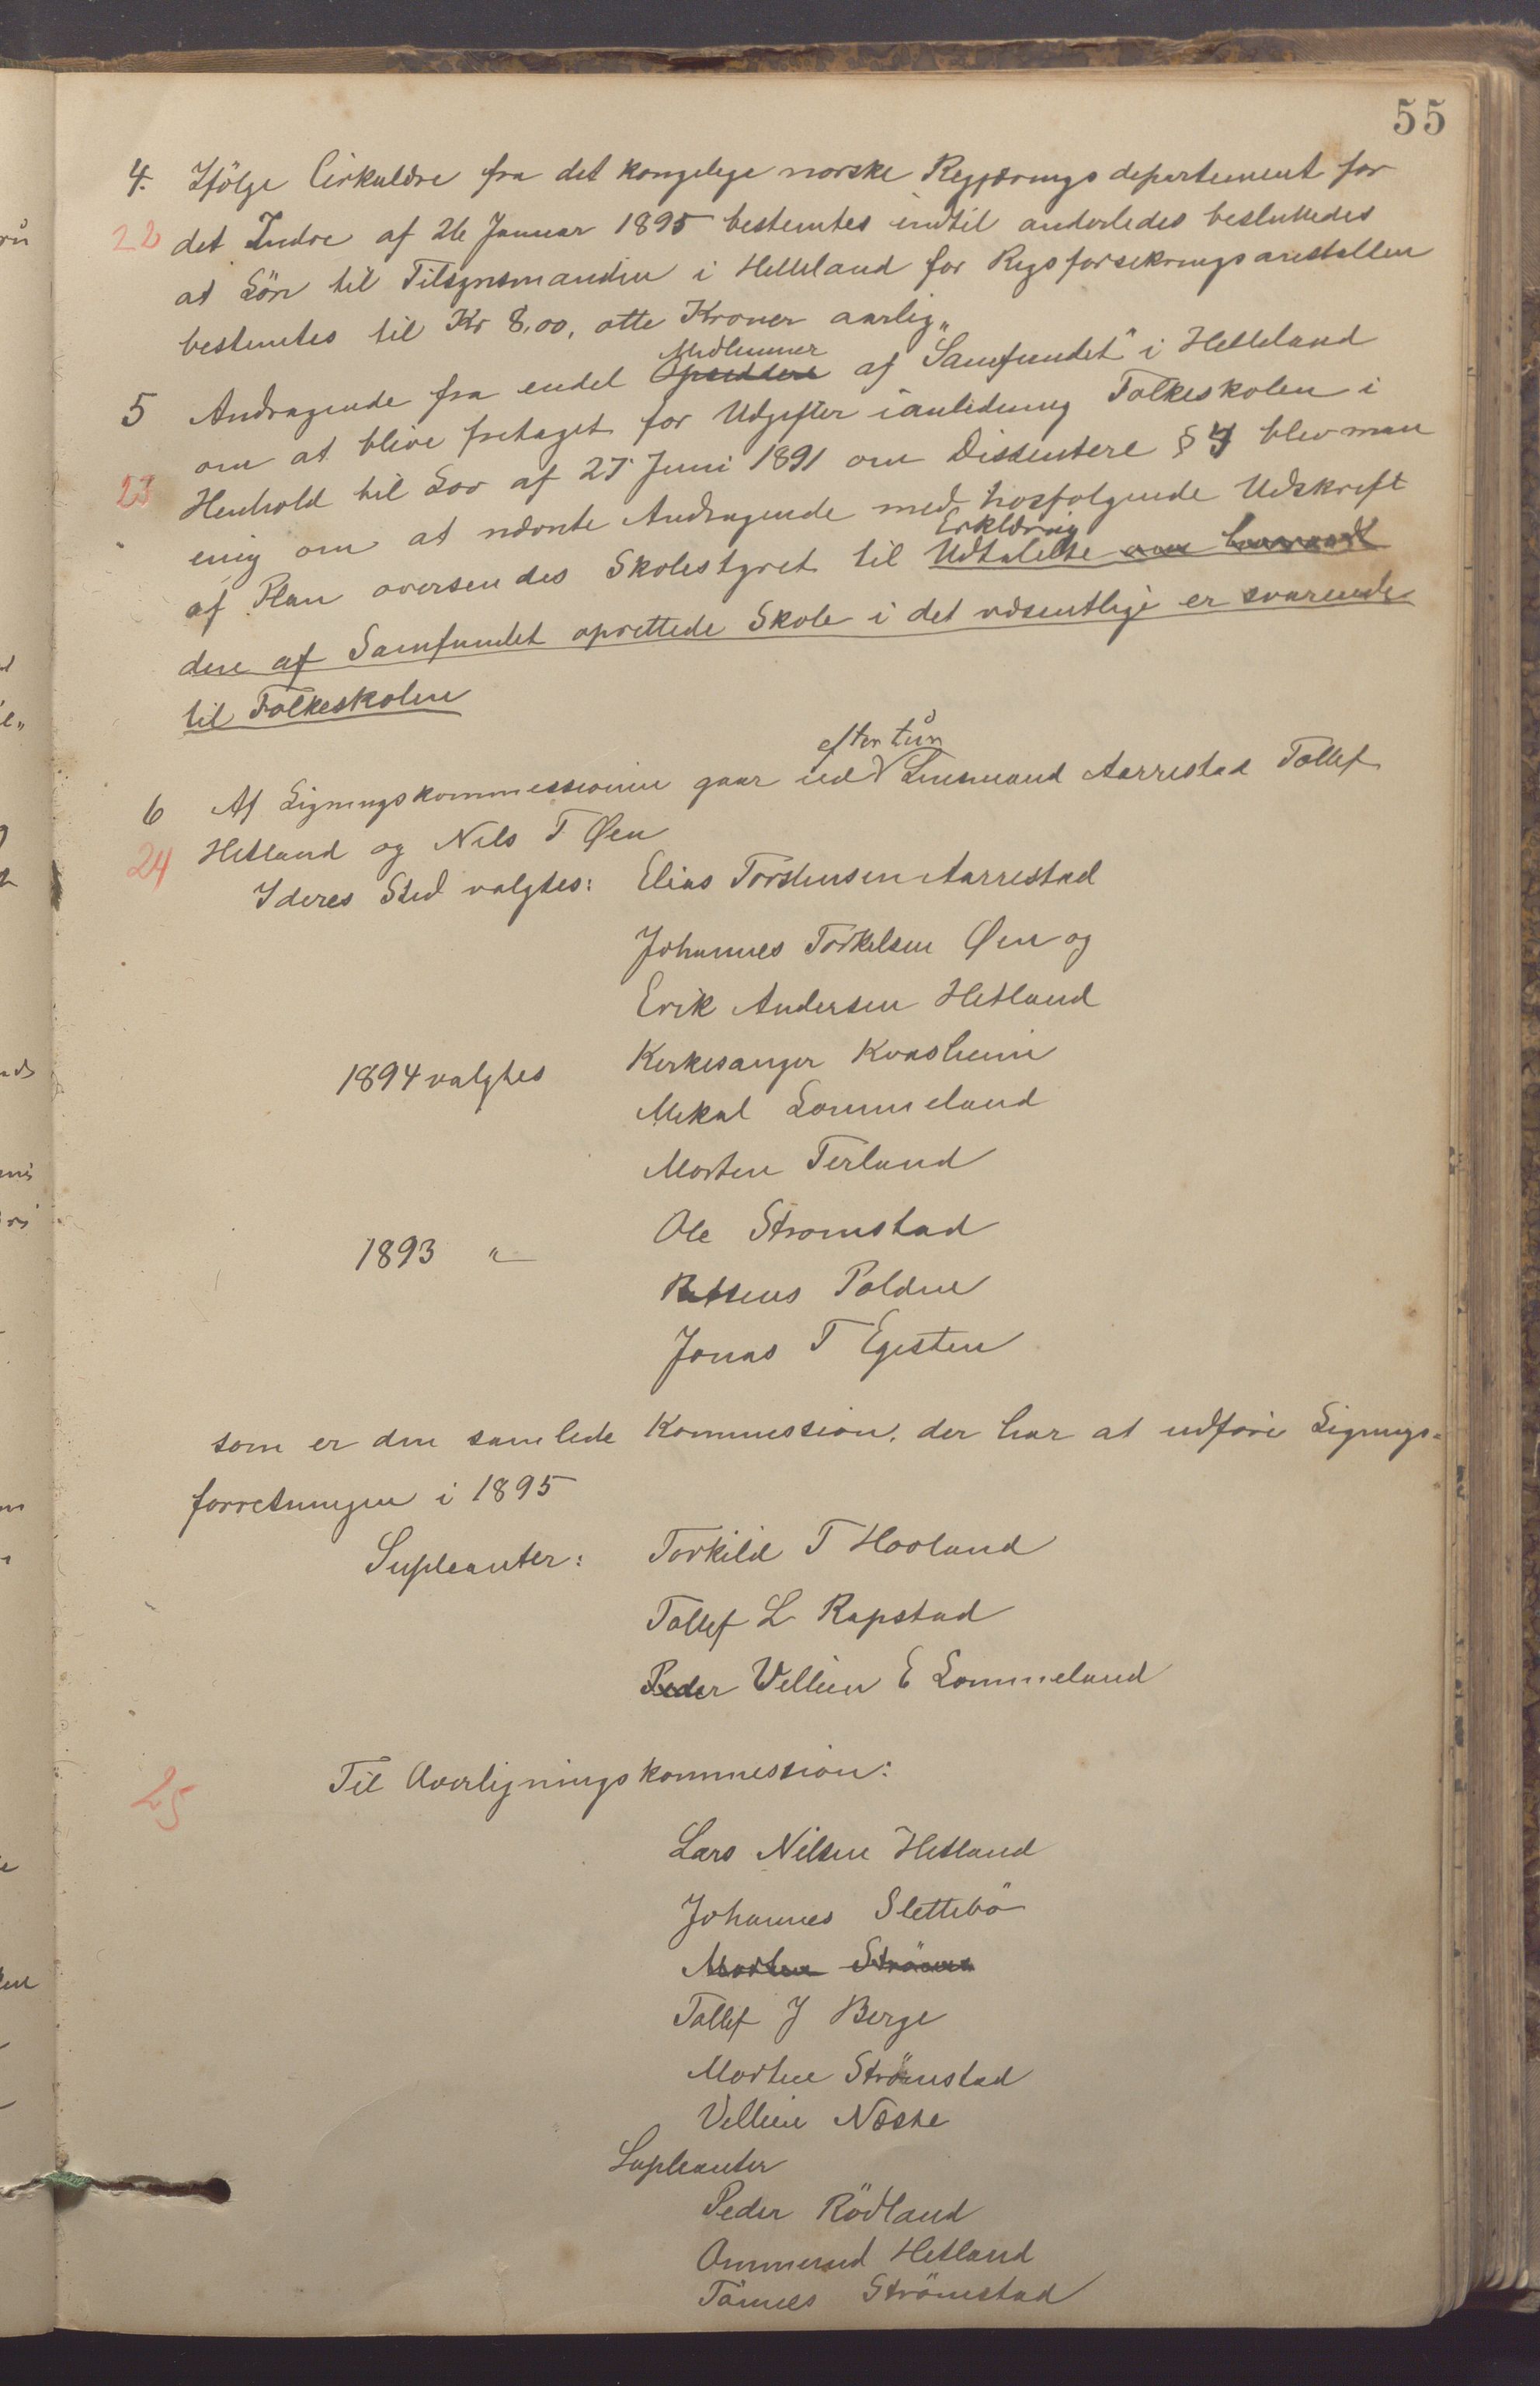 55
4. Ifölge Cirkulære fra det kongelige norske Regjeringsdepartement for
22 det Indre af 26 Januar 1895 bestemtes indtil anderledes besluttedes
at Lön til Tilsynsmanden i Helleland for Rigsforsikringsanstallen
bestemtes til Kr 8,00, otte Kroner aarlig„
Medlemmer
5 Andragende fra endel Opsiddere af Samfundet" i Helleland
om at blive fritaget for Udgifter ianledning Folkeskolen i
23 Henhold til Lov af 27 Juni 1891 om Dissentere § blev man
enig om at nævnte Andragende med hosfølgende Udskrift
Erklæring
af Plan oversendes Skolestyret til Udtalelse om
den af Samfundet oprettede Skole i det væsentlige er svarende
til Folkeskolen
efter tur
6 Af Ligningskommessionen gaar ud Lensmand Aarrestad Tollef
24 Hetland og Nils T Øen
I deres Sted valgtes: Elias Torstensen Aarrestad
Johannes Torkelsen Øen og
Erik Andersen Hetland
1894 valgtes Kirkesanger Kvasheim
Mikal Lommeland
Morten Terland
1893 " Ole Strømstad
Rasmus Polden
Jonas T Egesten
som er den samlede Kommession, der har at udføre Lignings=
forretningen i 1895
Supleanter: Torkild T Hovland
Tollef L Rapstad
Peder Vellien E Lommeland
25 Til Overligningskommession:
Lars Nilsen Hetland
Johannes Slettebö
Morten Ströms
Tollef J Berge
Morten Strömstad
Vellien Næske
Supleanter
Peder Rödland
Ommund Hetland
Tönnes Strömstad